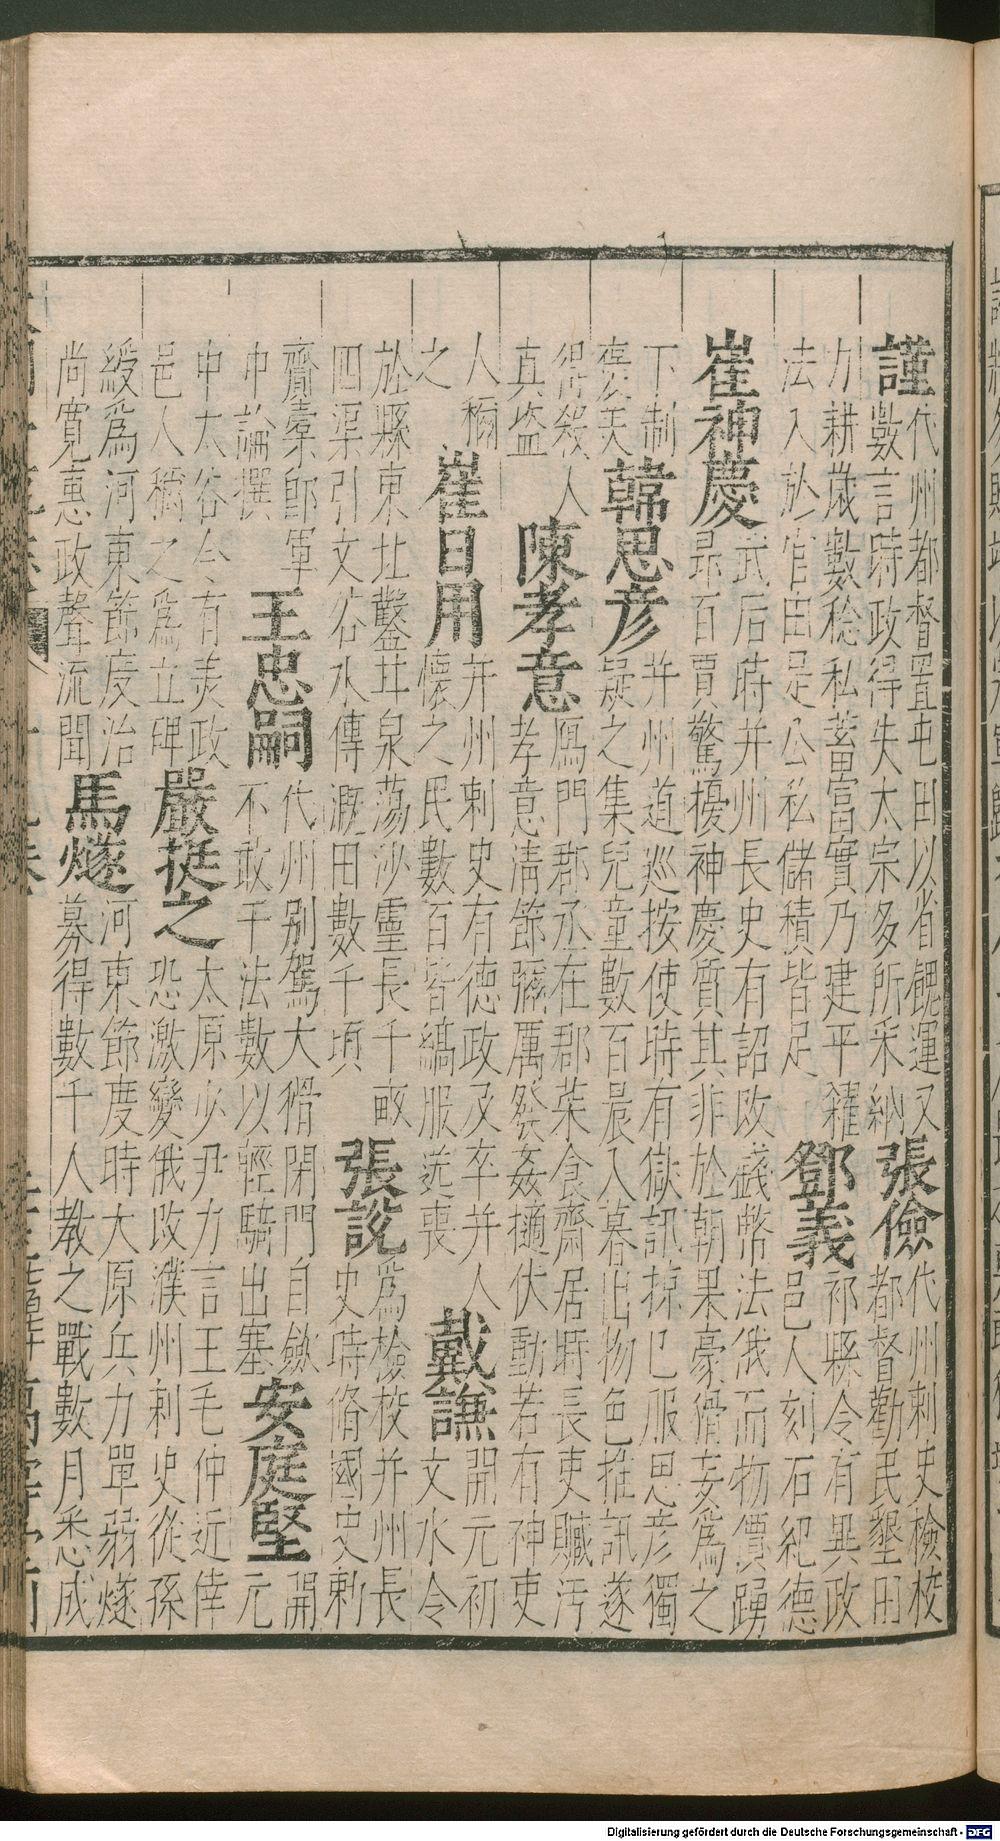 謹
代州都督置屯田以省餽運又
數言時政得失太宗多所采納
張儉
代州刺史檢校
都督勸民墾田
力耕歲數稔私蓄富實乃建平糴
法入於官由是公私儲積皆足
鄧義
祁縣令有異政
邑人刻石紀德
崔神慶
武后時并州長史有詔改錢幣法俄而物價踴
昻百賈驚擾神慶質其非於朝果豪猾妄為之
下制
褒美
韓思彦
并州道巡按使時有獄訊掠已服思彦獨
疑之集兒童數百晨入暮出物色推訊遂
得殺人
真盗
陳孝意
鴈門郡丞在郡菜食齋居時長吏贓汚
孝意清節彌厲發姦擿伏動若有神吏
人稱
之
崔日用
并州刺史有德政及卒并人
懷之民數百皆縞服送喪
戴謙
開元初
文水令
於縣東北鑿甘泉蕩沙靈長千畝
四渠引文谷水傳溉田數千頃
張說
爲檢校并州長
史時脩國史勑
齎槀即軍
中論撰
王忠嗣
代州别駕大猾閉門自斂
不敢干法數以輕騎出塞
安庭堅
開
元
中太谷令有美政
邑人稱之爲立碑
嚴挺之
太原少尹力言王毛仲近倖
恐激變俄改濮州刺史從孫
綬爲河東節度治
尚寬惠政聲流聞
馬燧
河東節度時大原兵力單弱燧
募得數千人教之戰數月悉成
Digitalisierung gefördert durch die Deutsche Forschungsgemeinschaft - DFG